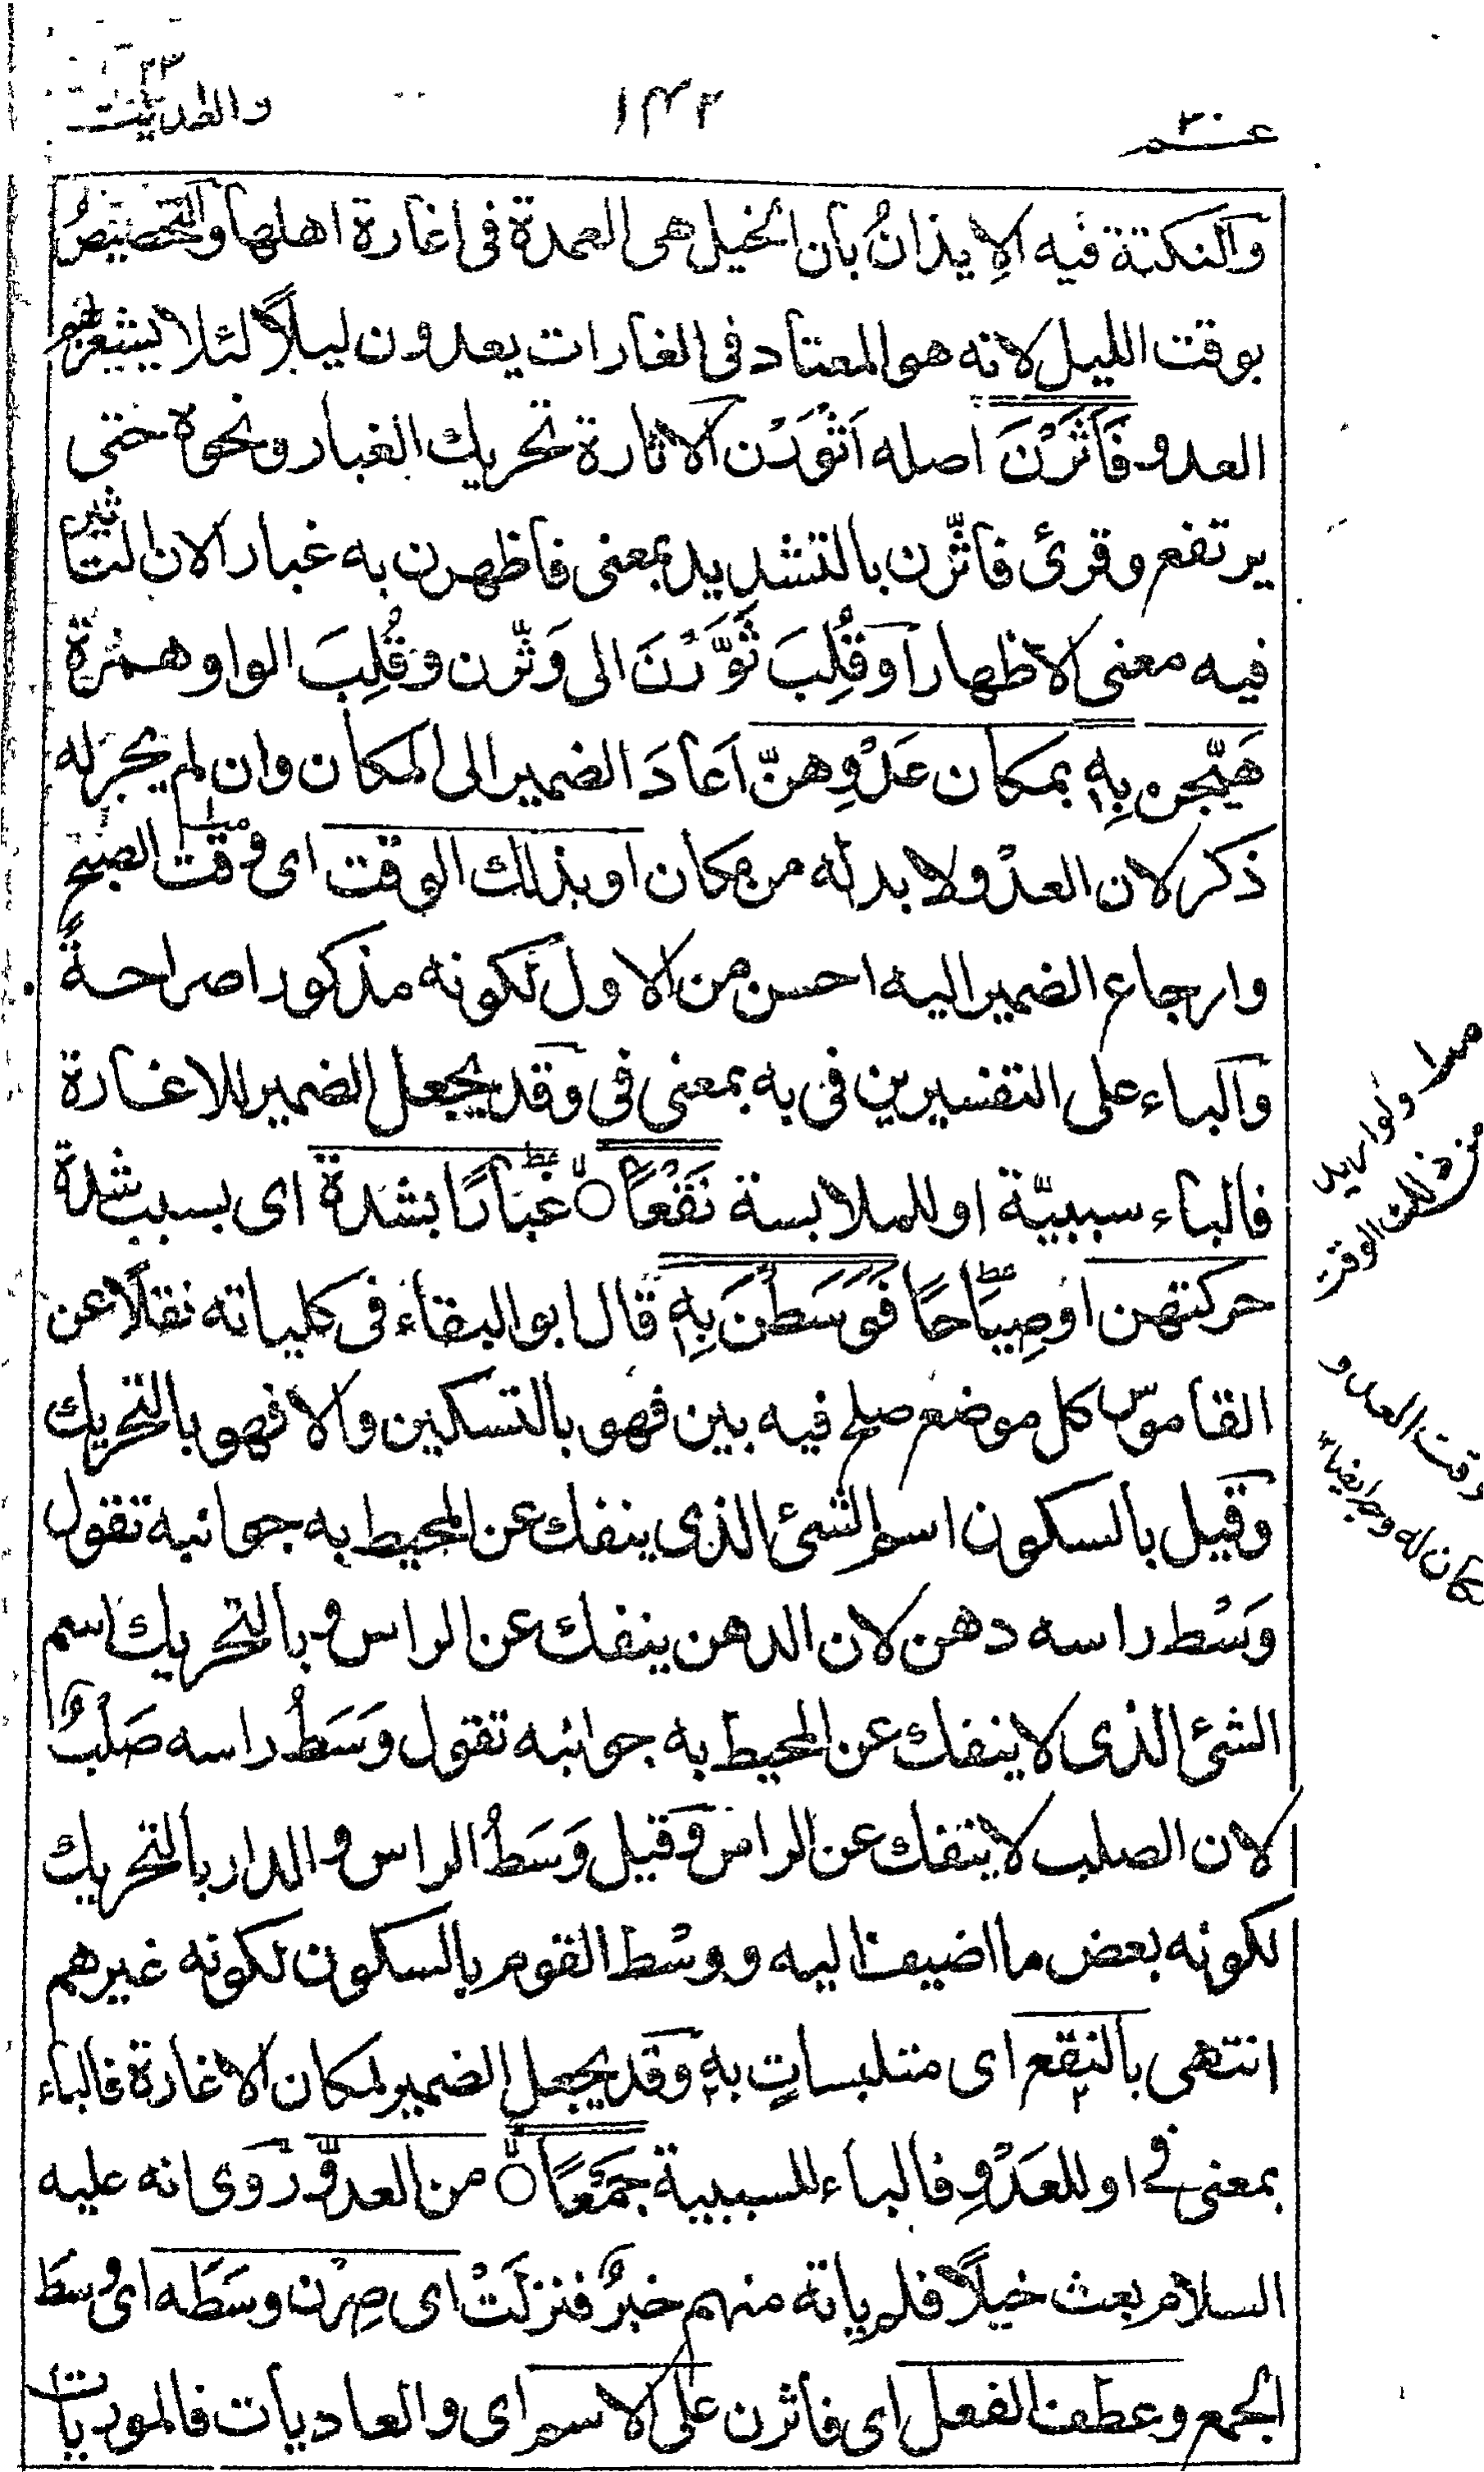 عم ٣٠
١٤٢
والعٰديٰت
والنكتة فيه الايذانُ بأن الخيل هى العمدة فى اغارة اهلها والتخصيصُ
بوقت الليل لانه هو المعتاد فى الغارات يعدون ليلًا لئلا يشعر بهم
العدو فَاَثَرْنَ اصله اَثْوَرْن الاثارة تحريك الغبار ونحوه حتى
يرتفع وقرئ فاثّرن بالتشديد بمعنى فاظهرن به غبارا لان التاثير
فيه معنى الاظهار او قُلِبَ ثَوَّرْنَ الى وَثّرن وقُلِبَ الواو همزة
هَيّجن بِهٖ بمكان عَدْوِهنّ اَعَادَ الضمير الى المكان وان لم يجر له
ذكر لان العدْو لا بد له من مكان او بذلك الوقت اى وقت الصبح
وارجاع الضمير اليه احسن من الاول لكونه مذكورا صراحةً
والباء على التفسيرين فى به بمعنى فى وقد يجعل الضمير للاغارة
فالباء سببيّة او للملابسة نَقْعًا غُبَارًا بشدة اى بسبب شدة
حركتهن او صِيَاحًا فَوَسَطْنَ بِهٖ قال ابو البقاء فى كلياته نقلًا عن
القاموس كل موضع صلح فيه بين فهو بالتسكين والا فهو بالتحريك
وقيل بالسكون اسم الشئ الذى ينفك عن المحيط به جوانبه تقول
وَسْط راسه دهن لان الدهن ينفك عن الراس وبالتحريك اسم
الشئ الذى لا ينفك عن المحيط به جوانبه تقول وَسَطُ راسه صَلْبٌ
لان الصلب لا ينفك عن الراس وقيل وَسَطُ الراس والدار بالتحريك
لكونه بعض ما اضيف اليه ووسْط القوم بالسكون لكونه غيرهم
انتهى بالنقع اى متلبساتٍ به وقد يجعل الضمير لمكان الاغارة فالباء
بمعنى فى او للعَدْوِ فالباء للسببية جَمْعًا من العدوّ روى انه عليه
السلام بعث خيلًا فلم ياته منهم خبرٌ فنزلَتْ اى صِرْن وسَطَه اى وسط
الجمع وعطف الفعل اى فاثرن على الاسم اى والعاديات فالموريات
ولو اريد
من ذلك الوقت
وقت العدو
كان له وجه ايضا